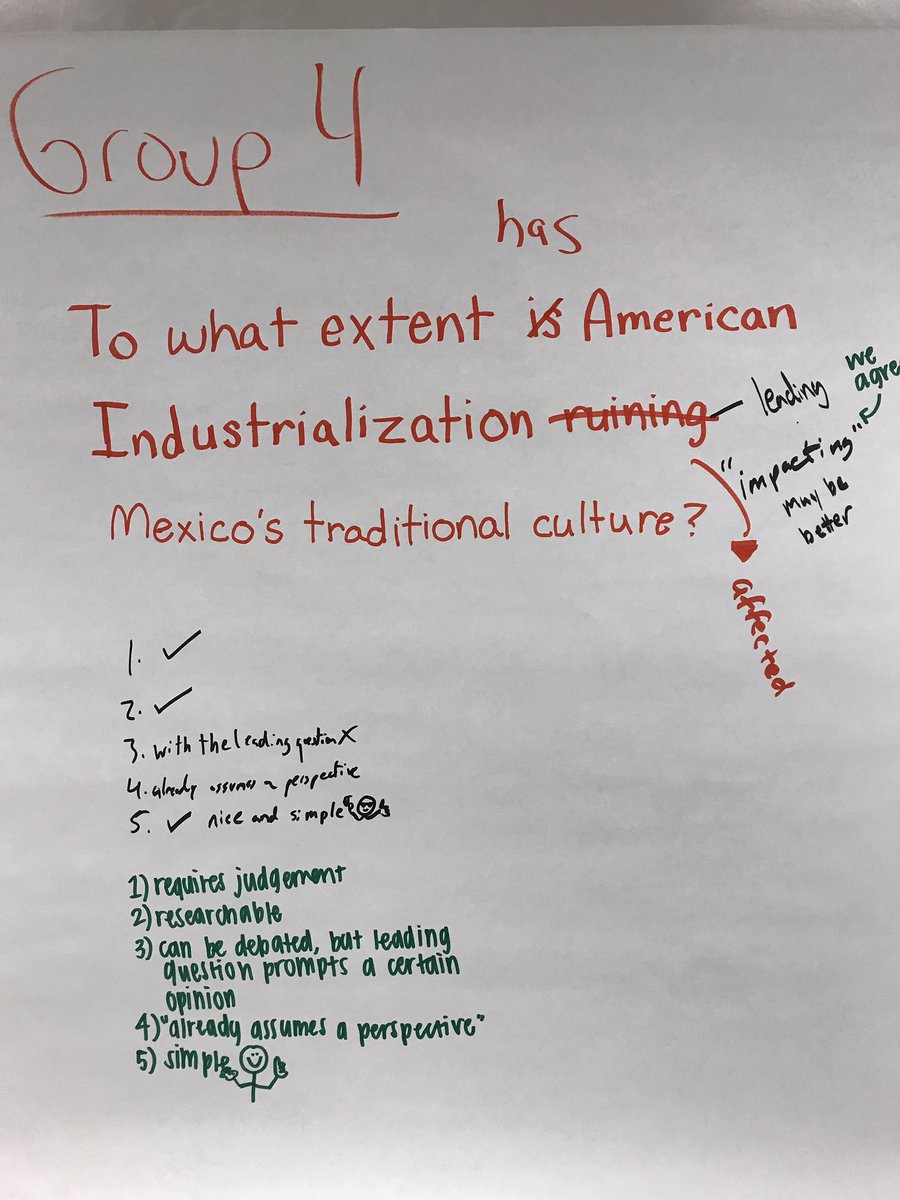 Group 4
has
To what extent is American
Industrialization ruining
Mexico's traditional culture?
leading
we
agree
"impacting"
may be
better
affected
1. ✓
2. ✓
3. with the leading question X
4. already assumes a perspective
5. ✓ nice and simple
1) requires judgement
2) researchable
3) can be debated, but leading
question prompts a certain
opinion
4) "already assumes a perspective"
5) simple